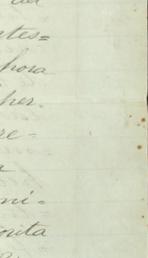 ntes=
hora
her-
re-
a
ni-
onta